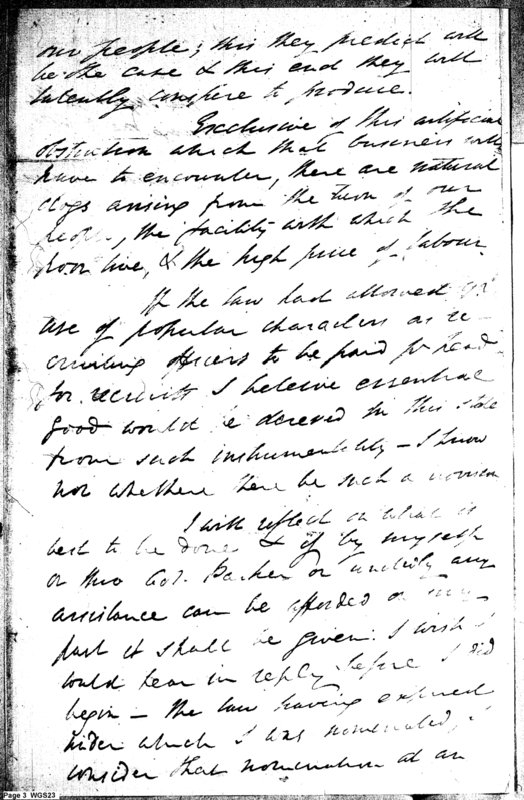 our people; this they predict will
be the case & this end they will
latently conspire to produce.
Exclusive of this artificial
obstruction which that business will
have to encounter, there are natural
clogs arising from the turn of our
people, the facility with which the
poor live, & the high price of labour.
If the law had allowed
use of popular characters as re-
cruiting officers to be paid p head
for recruits I beleive essential
good would be derived in this state
from such instrumentality – I know
not whether there be such a provision
I will reflect on what is
best to be done & if by myself
or thro Col. Parker or any
assistance can be afforded on my
part it shall be given. I wish I
could hear in reply before I did
begin – the law having expired
under which I was nominated, I
consider that nomination at an
Page 3 WGS23